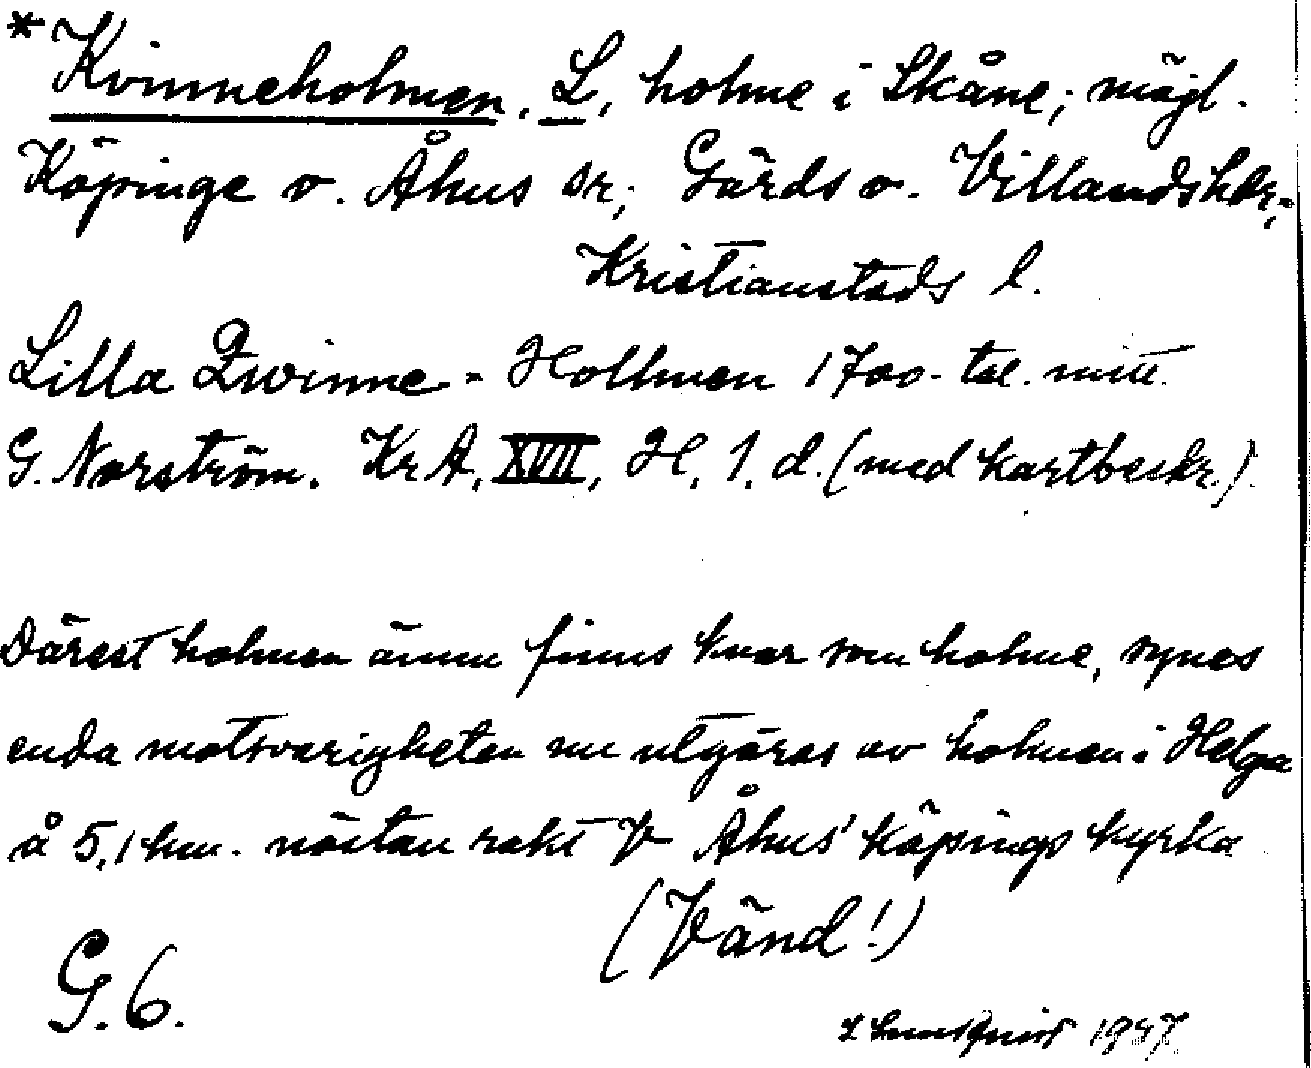 *Kvinneholmen, L, holme i Skåne; möjl.
Köpinge o. Åhus sr; Gärds o. Villands hdr;
Kristianstads l.
Lilla Qwinne-Hollmen 1700-tal. mitt.
G. Norström. KrA, XVII, H, 1, d. (med kartbeskr.)
Därest holmen ännu finns kvar som holme, synes
enda motsvarigheten nu utgöras av holmen i Helge
å 5,1 km. nästan rakt V Åhus' köpings kyrka
(Vänd!)
G. 6.
Lundquist 1947